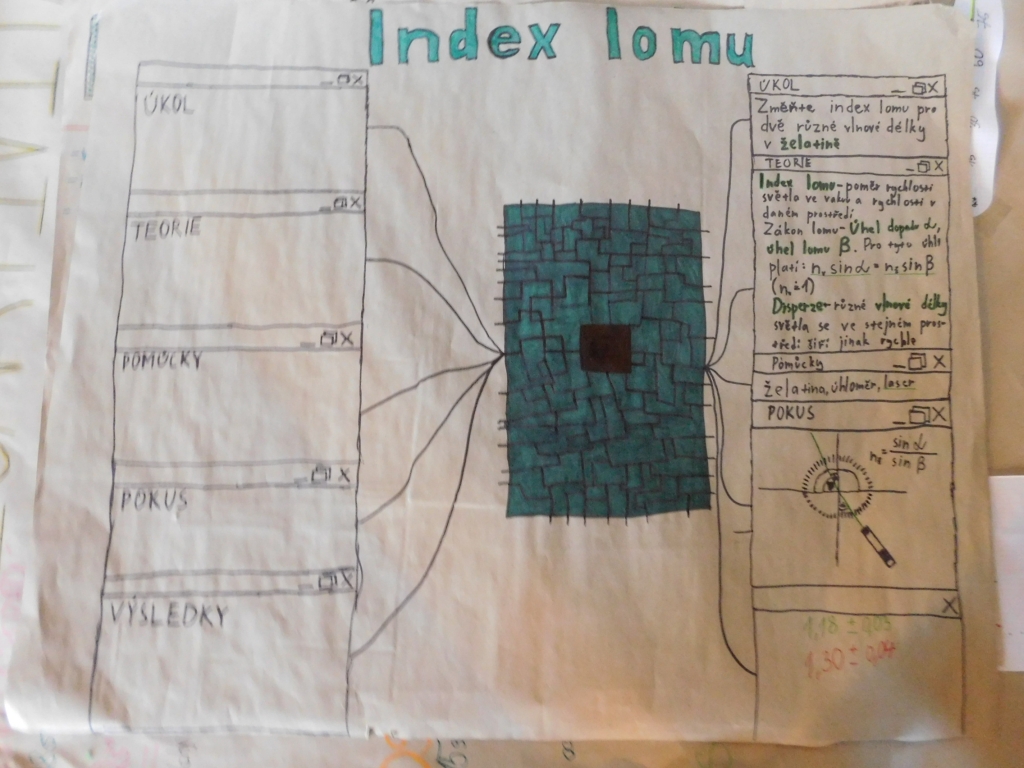 Index lomu
ÚKOL
TEORIE
POMŮCKY
POKUS
VÝSLEDKY
ÚKOL
Změřte index lomu pro
dvě různé vlnové délky
v želatině
TEORIE
Index lomu - poměr rychlosti
světla ve vakuu a rychlosti v
daném prostředí
Zákon lomu - Úhel dopadu α,
úhel lomu β. Pro tyto úhly
platí: n₁ sin α = n₂ sin β
Disperze - různé vlnové délky
světla se ve stejném pros-
tředí šíří jinak rychle
Pomůcky
želatina, úhloměr, laser
POKUS
n₂ = sin α
sin β
1,18 ± 0,03
1,30 ± 0,04